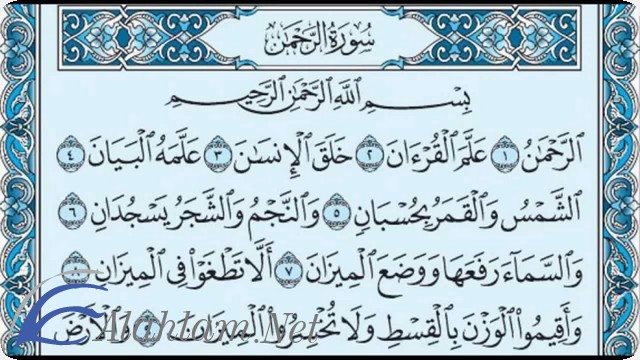 سُورَةُ الرَّحْمَٰن
بِسْمِ اللَّهِ الرَّحْمَٰنِ الرَّحِيمِ
الرَّحْمَٰنُ ١ عَلَّمَ الْقُرْءَانَ ٢ خَلَقَ الْإِنسَٰنَ ٣ عَلَّمَهُ الْبَيَانَ ٤
الشَّمْسُ وَالْقَمَرُ بِحُسْبَانٍ ٥ وَالنَّجْمُ وَالشَّجَرُ يَسْجُدَانِ ٦
وَالسَّمَآءَ رَفَعَهَا وَوَضَعَ الْمِيزَانَ ٧ أَلَّا تَطْغَوْا۟ فِى الْمِيزَانِ
وَأَقِيمُوا۟ الْوَزْنَ بِالْقِسْطِ وَلَا تُخْسِرُوا۟ الْمِيزَانَ وَالْأَرْضَ
Alahlam.Net